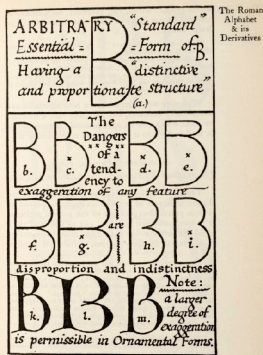 The Roman
Alphabet
& its
Derivatives
ARBITRARY "Standard"
Essential = Form of B.
Having a "distinctive
and proportionate structure"
(a.)
The
Dangers
of a
tend-
ency to
b. c. d. e.
exaggeration of any feature
are
f. g. h. i.
disproportion and indistinctness
k. l. m.
Note:
a larger
degree of
exaggeration
is permissible in Ornamental Forms.